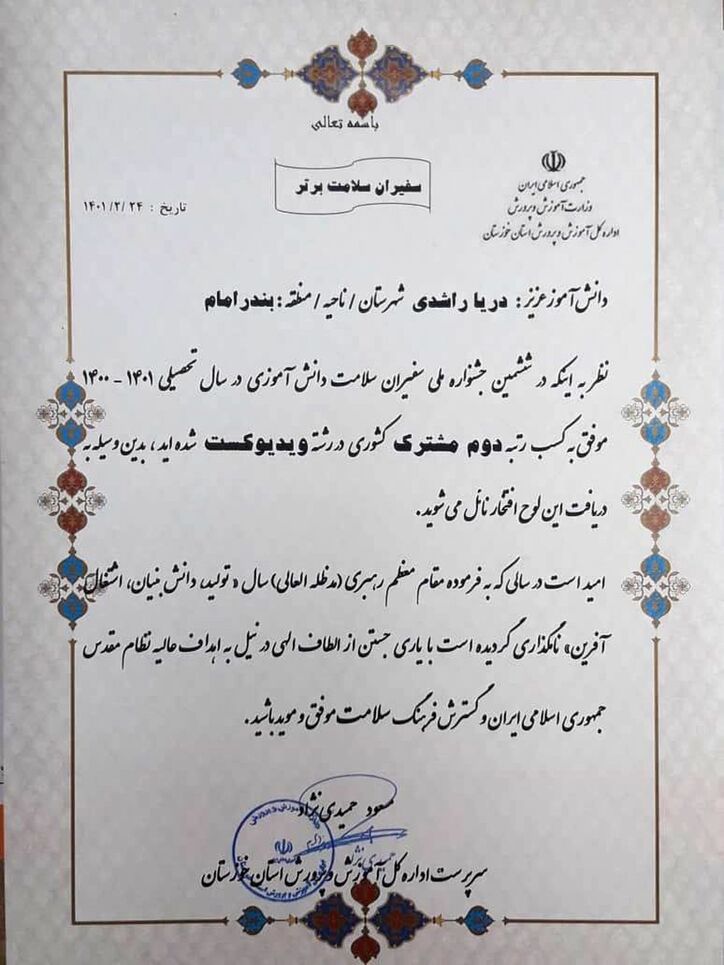 باسمه تعالی
جمهوری اسلامی ایران
وزارت آموزش و پرورش
اداره کل آموزش و پرورش استان خوزستان
سفیران سلامت برتر
تاریخ : ۱۴۰۱/۲/۲۴
دانش آموز عزیز : دریا راشدی شهرستان / ناحیه / منطقه : بندر امام
نظر به اینکه در ششمین جشنواره ملی سفیران سلامت دانش آموزی در سال تحصیلی ۱۴۰۱ - ۱۴۰۰
موفق به کسب رتبه دوم مشترک کشوری در رشته ویدیوکست شده اید ، بدین وسیله به
دریافت این لوح افتخار نائل می شوید .
امید است در سالی که به فرموده مقام معظم رهبری (مدظله العالی) سال « تولید، دانش بنیان، اشتغال
آفرین» نامگذاری گردیده است با یاری جستن از الطاف الهی در نیل به اهداف عالیه نظام مقدس
جمهوری اسلامی ایران و گسترش فرهنگ سلامت موفق و موید باشید .
مسعود حمیدی نژاد
سرپرست اداره کل آموزش و پرورش استان خوزستان